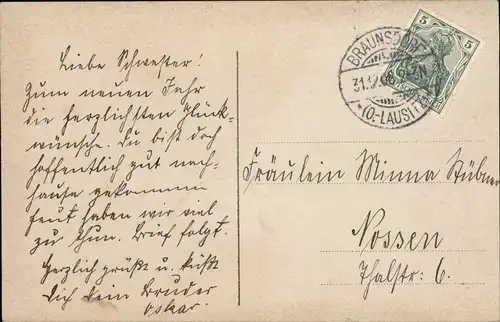 Liebe Schwester!
Zum neuen Jahr
die herzlichsten Glück-
wünsche. Du bist doch
hoffentlich gut nach-
hause gekommen
heut haben wir viel
zu thun. Brief folgt.
Herzlich grüßt u. küßt
Dich Dein Bruder
Oskar.
5 5
BRAUNSDORF
31.12.
*(O.-LAUS)
Fräulein Minna Stübner
Nossen
Thalstr: 6.